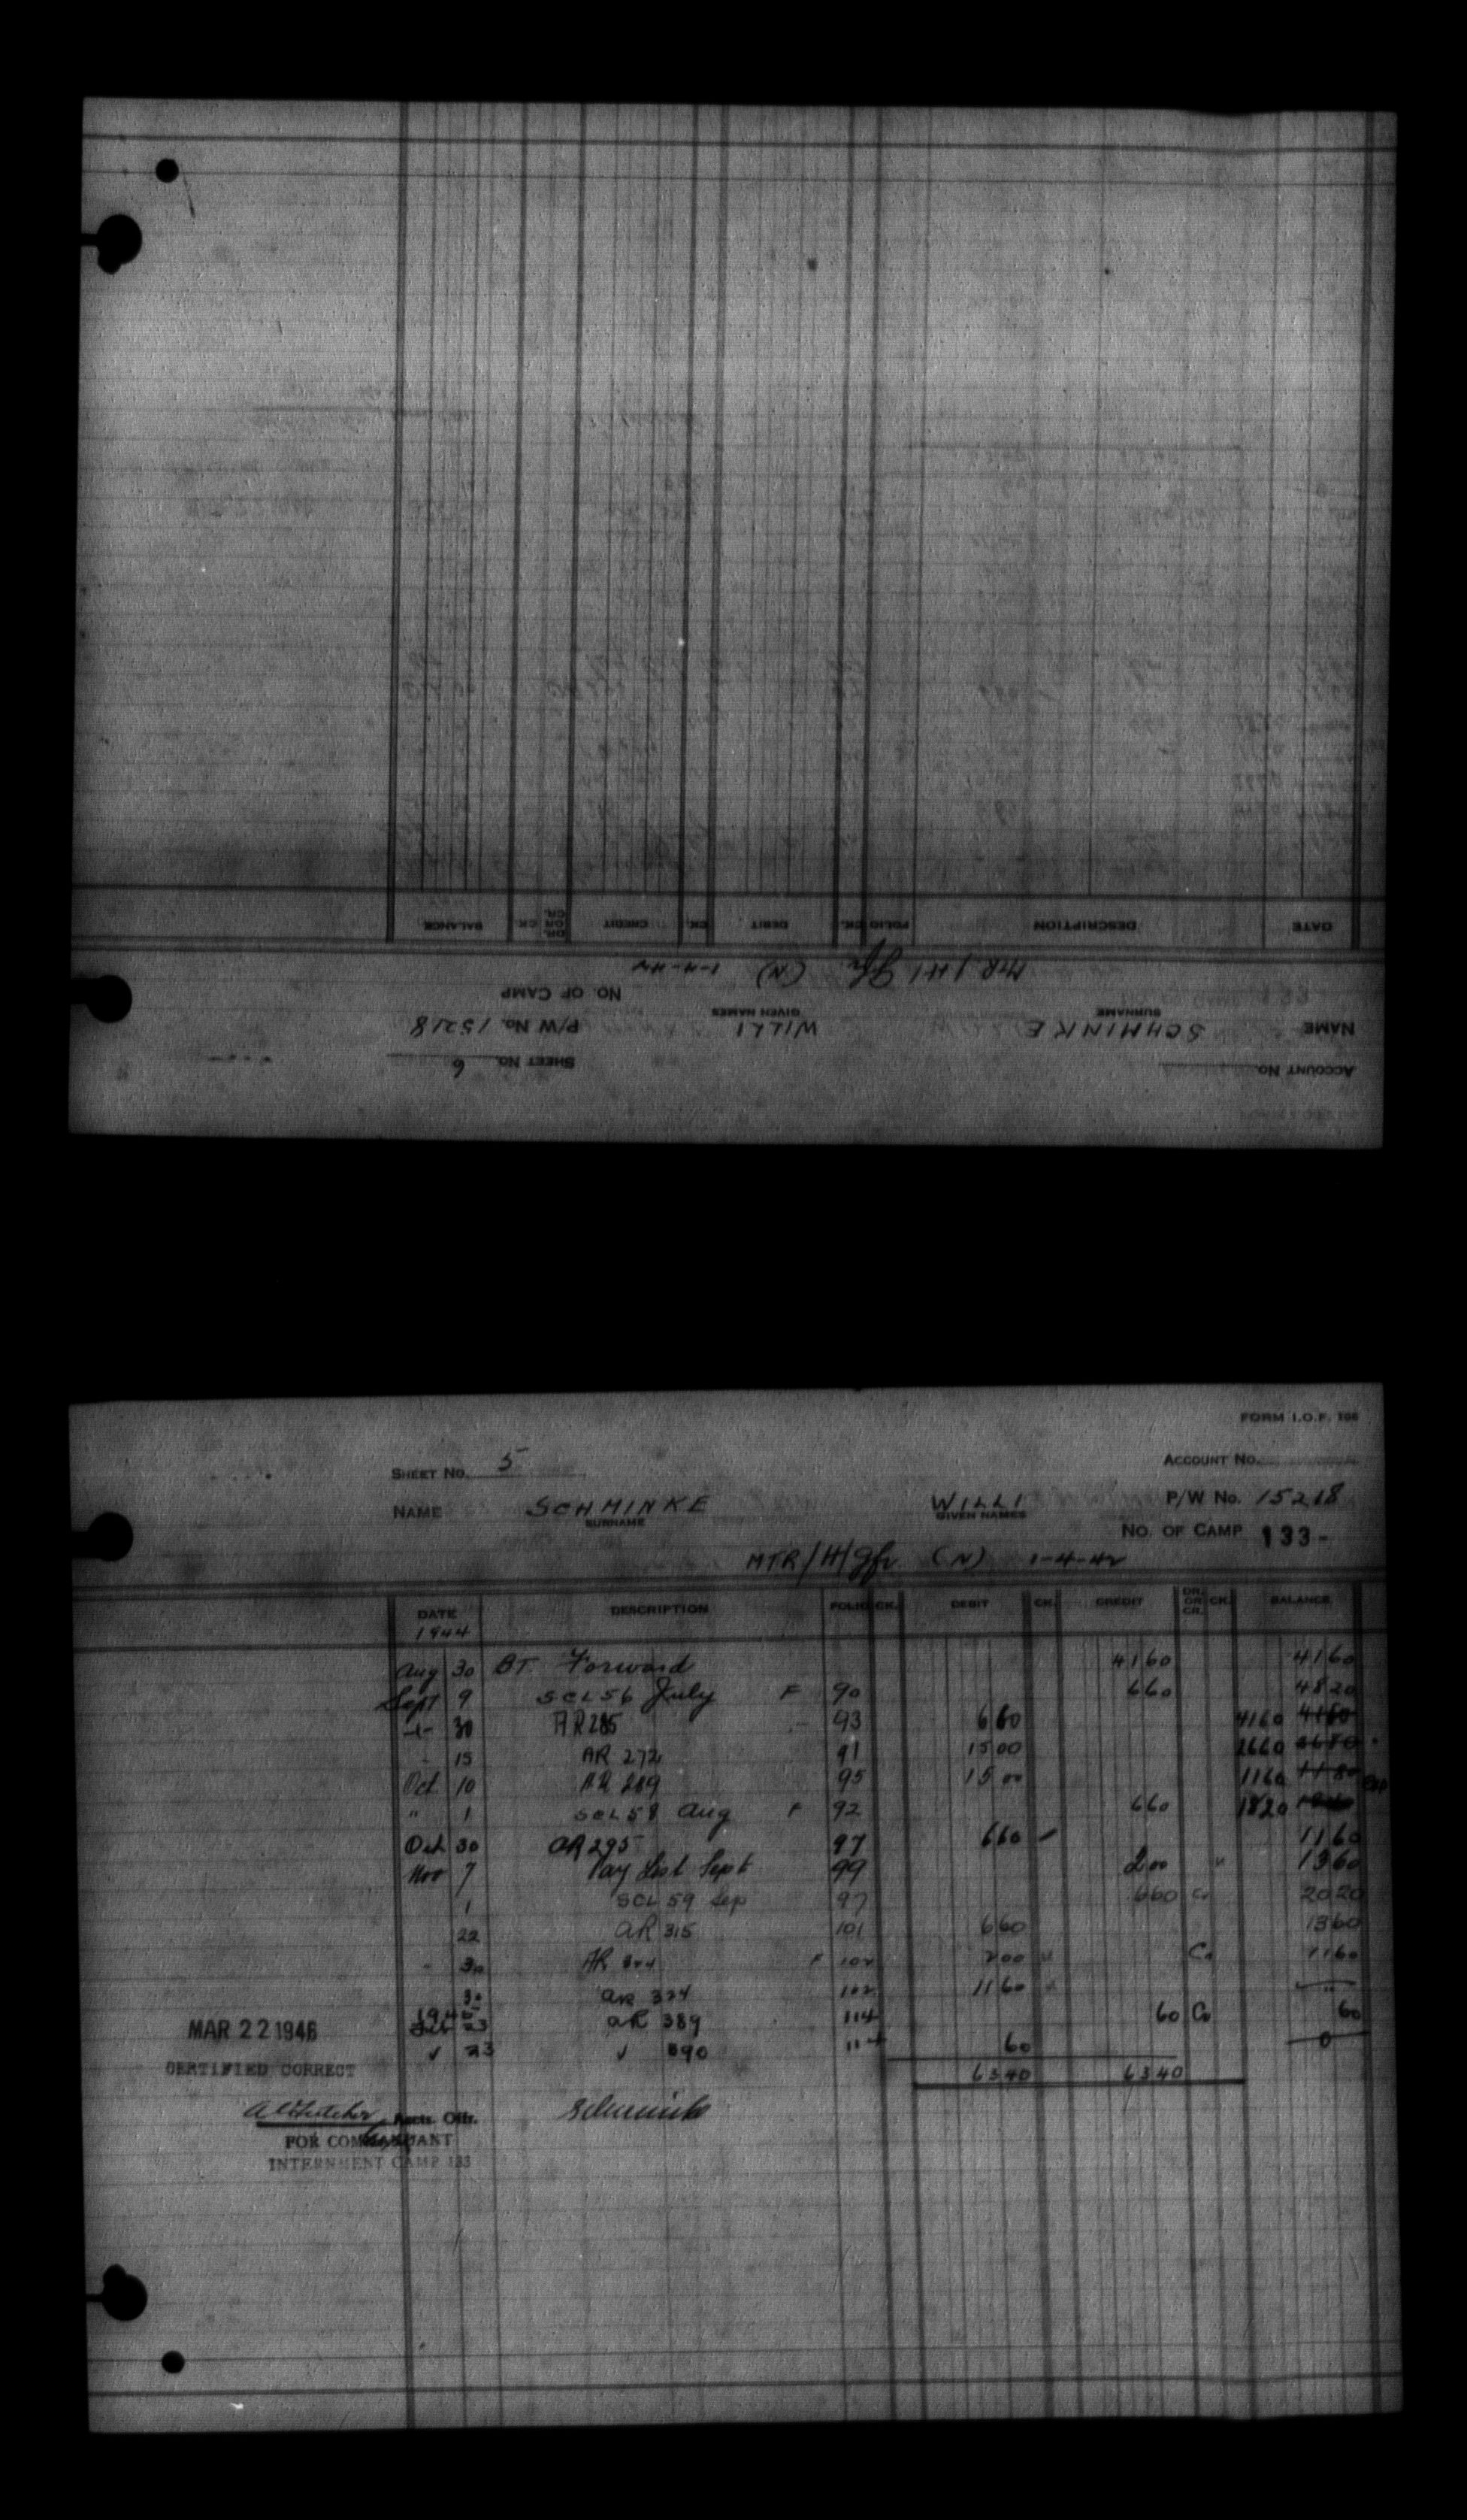 ACCOUNT No.
SHEET No. 6
NAME SCHMINKE WILLI P/W No. 15218
SURNAME GIVEN NAMES
NO. OF CAMP
MTR/H/Gfr. (N) 1-4-42
DATE DESCRIPTION FOLIO CK. DEBIT CK. CREDIT DR. OR CR. CK. BALANCE
FORM I.O.F. 106
SHEET No. 5 ACCOUNT No.
NAME SCHMINKE WILLI P/W No. 15218
SURNAME GIVEN NAMES
NO. OF CAMP 133-
MTR/H/Gfr. (N) 1-4-42
DATE DESCRIPTION FOLIO CK. DEBIT CK. CREDIT DR. OR CR. CK. BALANCE
1944
Aug 30 BT. Forward 4160 4160
Sept 9 SCL 56 July F 90 660 4820
30 AR 285 93 660 4160
15 AR 272 91 1500 2660
Oct 10 AR 289 95 1500 1160
" 1 SCL 58 Aug F 92 660 1820
Oct 30 AR 295 97 660 1160
Nov 7 Pay List Sept 99 200 1360
1 SCL 59 Sep 97 660 Cr 2020
22 AR 315 101 660 1360
30 AR 102 200 Cr 1160
30 AR 324 102 1160
1945
Feb 23 AR 389 114 60 Cr 60
✓ 23 ✓ 390 114 60 0
6340 6340
MAR 22 1946
CERTIFIED CORRECT
Accts. Offr.
FOR COMMANDANT
INTERNMENT CAMP 133
Schminke